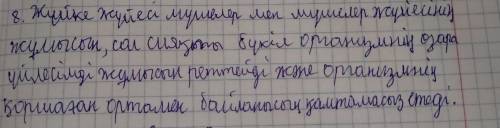 8. Жүйке жүйесі мүшелер мен мүшелер жүйесінің
жұмысын, сол сияқты бүкіл организмнің өзара
үйлесімді жұмысын реттейді және организмнің
қоршаған ортамен байланысын қамтамасыз етеді.